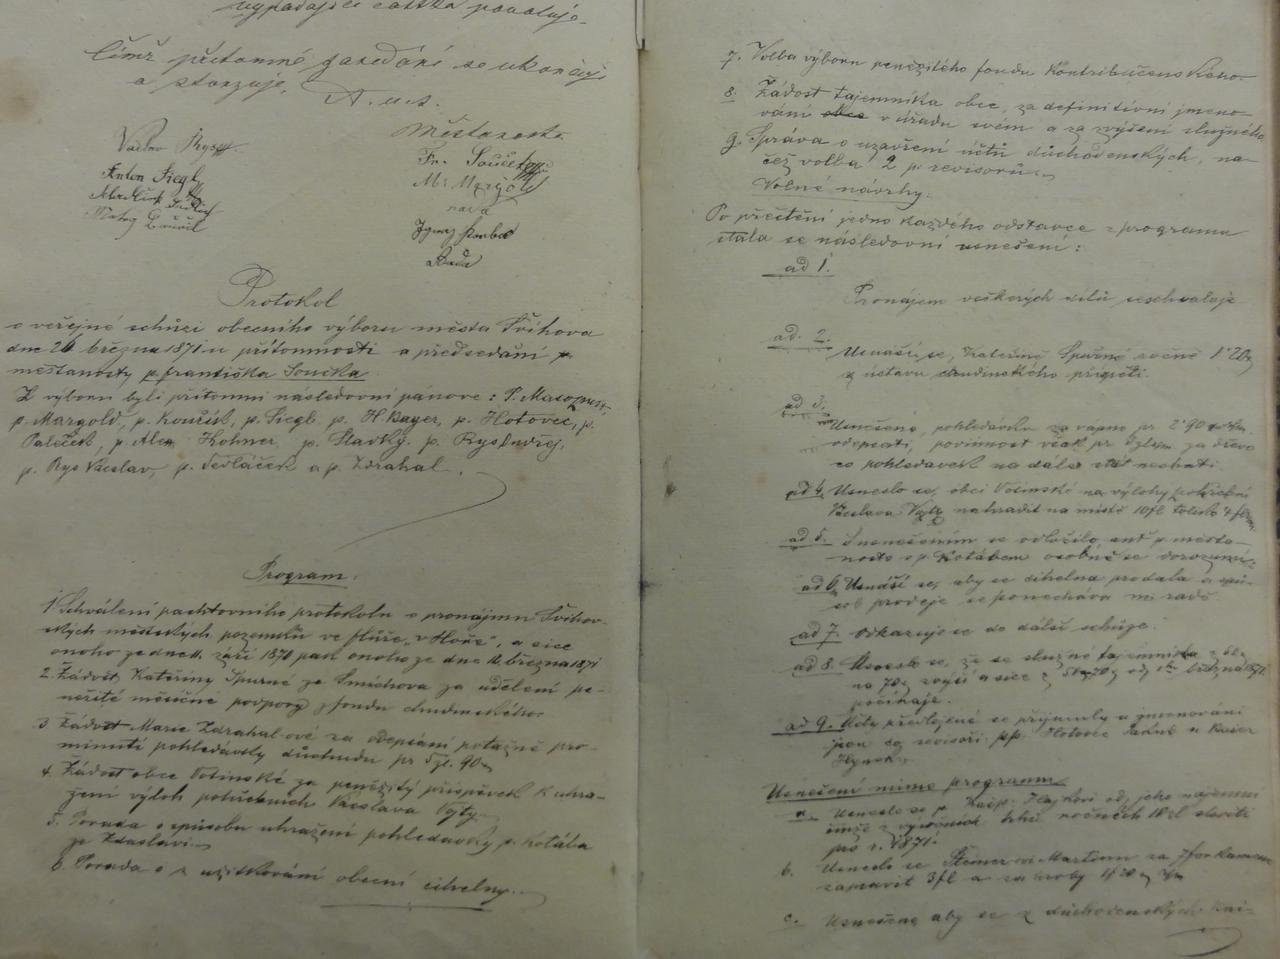 vypadající částka povoluje.
Čímž přítomné zasedání se ukončuje
a stvrzuje.
D. u. s.
Městarosta
Fr. Souček
Anton Siegl
Protokol
o veřejné schůzi obecního výboru města Švihova
dne 26 března 1871 u přítomnosti a předsedání
měštanosty p. františka Součka.
Z výboru byli přítomni následovní pánové : P. Masopust,
p. Margold, p. Kouřík, p. Siegl p. H. Bayer, p. Hotovec, p.
Paleček, p. Alex Kohner, p. Slavký. p. Rys Ondřej,
p. Rys Václav, p. Sedláček a p. Zdrahal.
Program.
1. Schválení pachtovního protokolu o pronájmu Švihov-
ských městských pozemků ve flůře „v Hoře“, a sice
onoho ze dne 11. září 1870 pak onoho ze dne 16. března 1871
2. Žádost Kateřiny Spurné ze Smíchova za udělení pe-
něžité měsíčné podpory z fondu chudinského.
3. Žádost Marie Zdrahal-ové za odepsání potažné pro-
minutí pohledávky důchodu pr 5 zl. 90
4. Žádost obce Vosinské za peněžitý příspěvek k uhra-
žení výloh pohřebních Václava Vojty.
5. Porada o spůsobu uhražení pohledávky p. Kotába
ze Zdaslavi.
6. Porada o z užitkování obecní cihelny.
7. Volba výboru peněžitého fondu Kontribučenského.
8. Žádost tajemníka obce, za definitivní jmeno-
vání v úřadu svém a za zvýšení služného
9. Správa o uzavření účtů důchodenských, na-
čež volba 2 p. revisorů.
Volné návrhy.
Po přečtění jedno každého odstavce z programu
stala se následovní usnešení :
ad 1.
Pronájem veškerých dílů se schvaluje
ad. 2.
Usnáší se, Kateřině Spurné ročně 1 20
z ústavu chudinského přispěti.
ad 3.
Usnešeno, pohledávku za vápno pr 2 90
odepsati, povinnost však pr 3 zl za dřevo
co pohledávek na dále stát nechati.
ad 4. Usneslo se, obci Vosinské na výlohy pohřební
Václava Vojty nahradit na místě 10 fl toliko 4 fl
ad 5. S usnešením se odložilo, anť p. měšta-
nosta s p. Kotábem osobně se dorozumí.
ad 6. Usnáší se, aby se cihelna prodala a spů-
sob prodeje se ponechává m. radě.
ad 7. Odkazuje se do další schůze.
ad 8. Usneslo se, že se služné tajemníka
na 70 zvýší a sice z 50 70 od 1ho března 1871
počínaje.
ad 9. Účty předložené se přijmuly a jmenováni
jsou co revisoři pp. Hotovec Jakub a Baier
Hynek.
Usnešení mimo programu
a. Usneslo se p. Kašp. Hajkovi od jeho nájemní
ročních 18 zl slevit
pro r. 1871.
b. Usneslo se Martinu za
zapravit 3 fl a za hroby 1 fl 20
c. Usnešeno aby se z důchodenských kni-